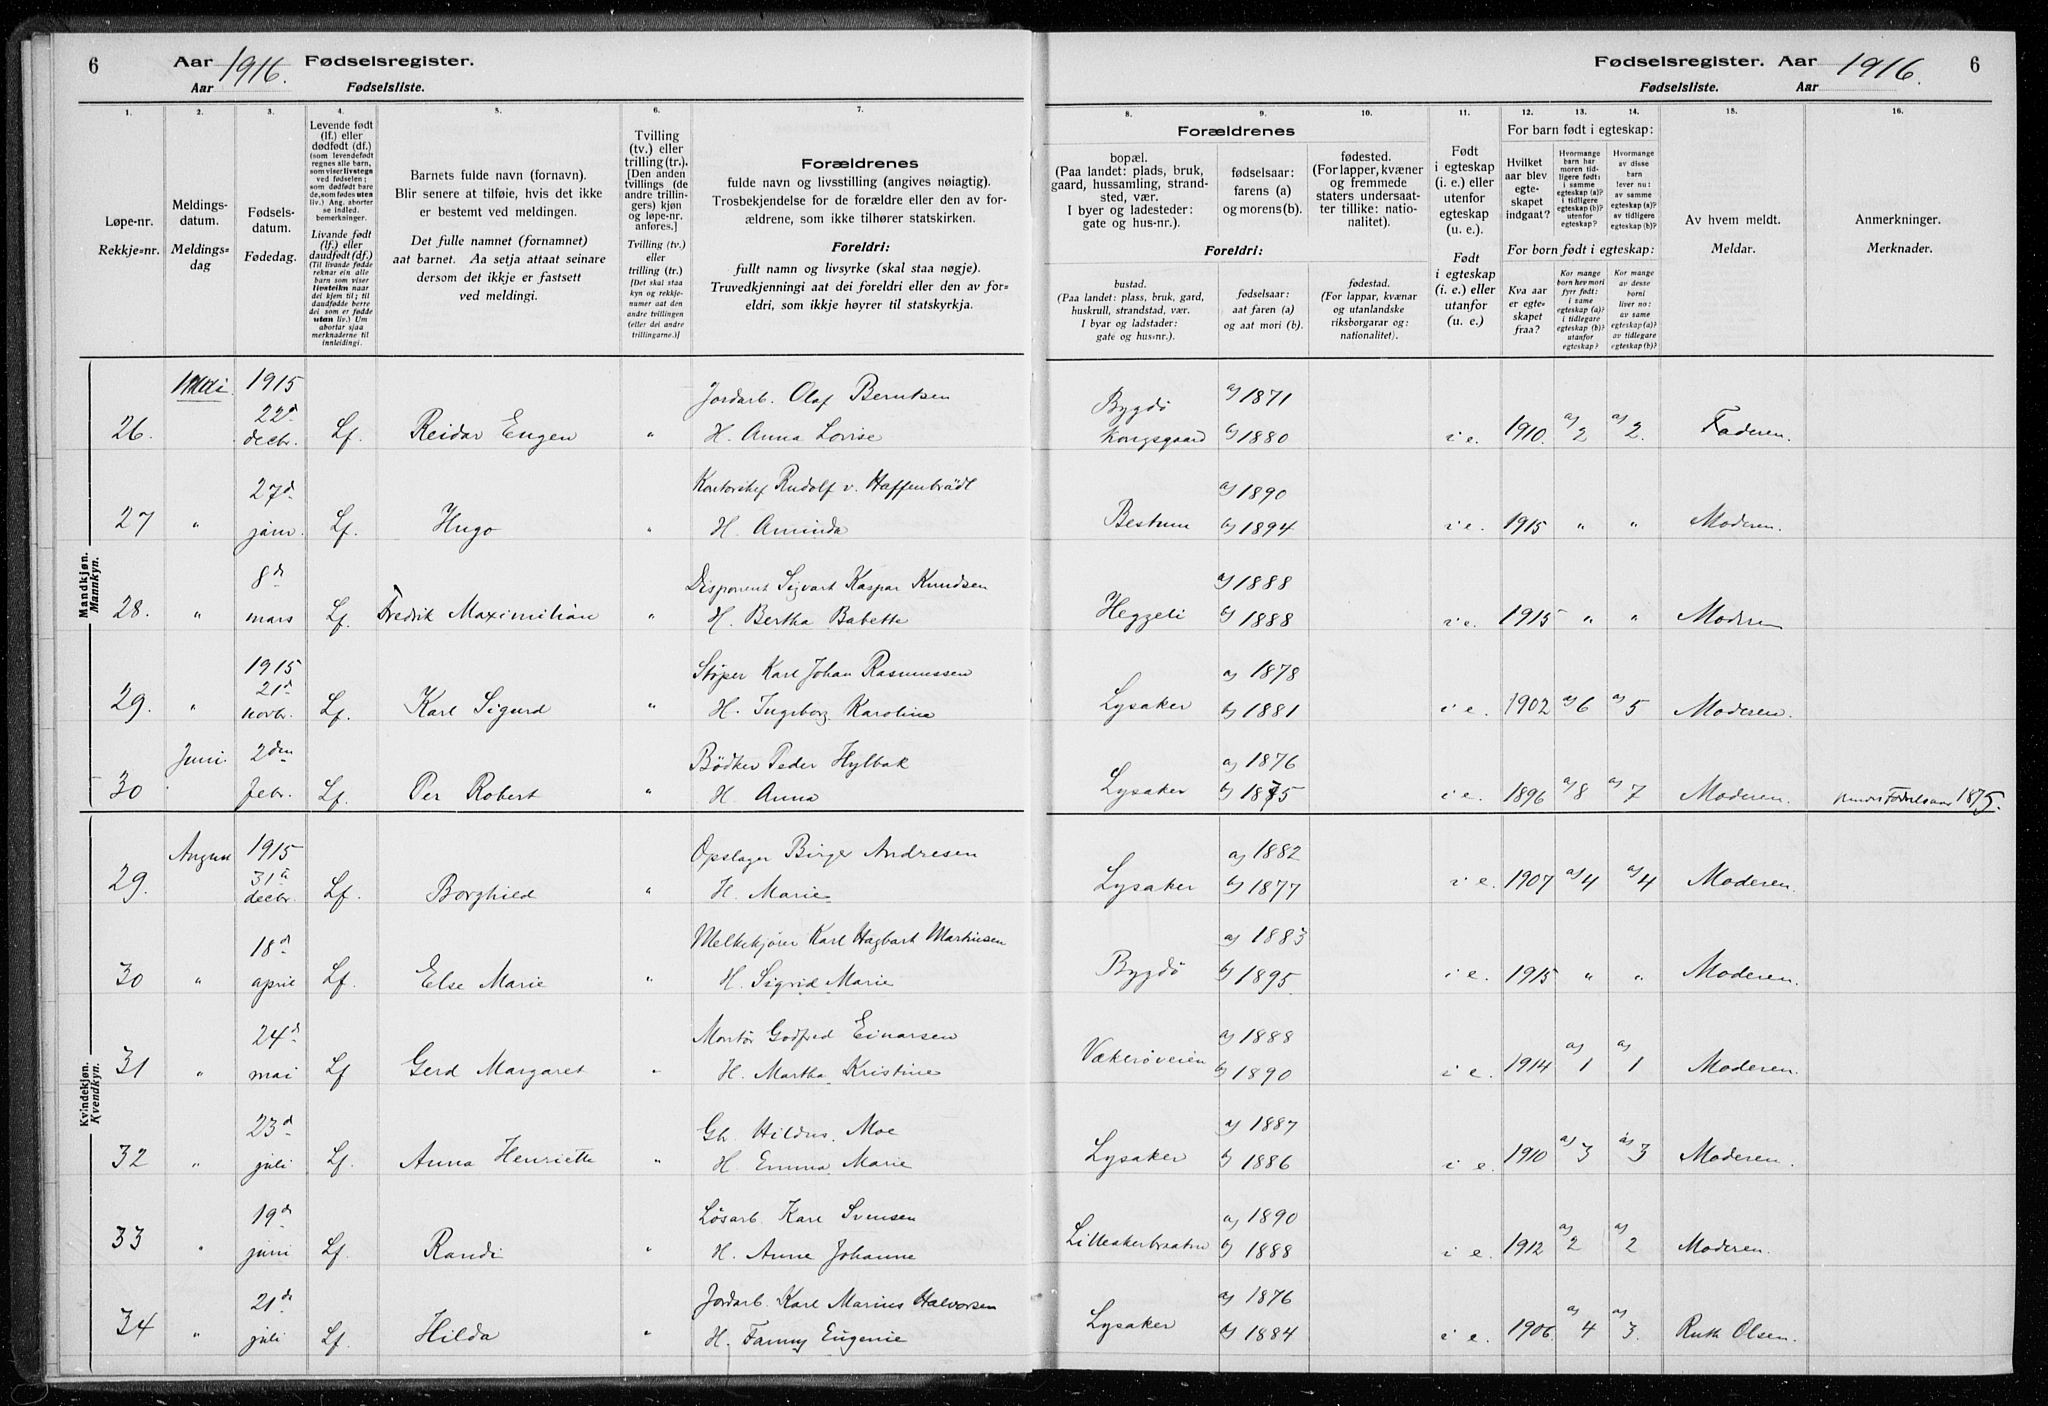 6
Aar 1916. Fødselsregister.
Aar Fødselsliste.
Fødselsregister. Aar 1916. 6
Fødselsliste. Aar
1. 2. 3. 4. 5. 6. 7.
8. 9. 10. 11. 12. 13. 14. 15. 16.
Løpe-nr.
Rekkje=nr.
Meldings-
datum.
Meldings=
dag
Fødsels-
datum.
Fødedag.
Levende født
(lf.) eller
dødfødt (df.)
(som levendefødt
regnes alle barn,
som viser livstegn
ved fødselen;
som dødfødt bare
de, som fødes uten
liv.) Ang. aborter
se indled.
bemerkninger.
Livande født
(lf.) eller
daudfødt (df.)
(Til livande fødde
reknar ein alle
barn som viser
livsteikn naar
dei kjem til; til
daudfødde berre
dei som er fødde
utan liv.) Um
abortar sjaa
merknaderne til
innleidingi.
Barnets fulde navn (fornavn).
Blir senere at tilføie, hvis det ikke
er bestemt ved meldingen.
Det fulle namnet (fornamnet)
aat barnet. Aa setja attaat seinare
dersom det ikkje er fastsett
ved meldingi.
Tvilling
(tv.) eller
trilling (tr.).
[Den anden
tvillings (de
andre trillin-
gers) kjøn
og løpe-nr.
anføres.]
Tvilling (tv.)
eller
trilling (tr.)
[Det skal staa
kyn og rekkje-
numer aat den
andre tvillingen
(eller dei andre
trillingarne.)]
Forældrenes
fulde navn og livsstilling (angives nøiagtig).
Trosbekjendelse for de forældre eller den av for-
ældrene, som ikke tilhører statskirken.
Foreldri:
fullt namn og livsyrke (skal staa nøgje).
Truvedkjenningi aat dei foreldri eller den av for-
eldri, som ikkje høyrer til statskyrkja.
Forældrenes
bopæl.
(Paa landet: plads, bruk,
gaard, hussamling, strand-
sted, vær.
I byer og ladesteder:
gate og hus-nr.).
fødselsaar:
farens (a)
og morens (b).
fødested.
(For lapper, kvæner
og fremmede
staters undersaat-
ter tillike: natio-
nalitet).
Foreldri:
bustad.
(Paa landet: plass, bruk, gard,
huskrull, strandstad, vær.
I byar og ladstader:
gate og hus=nr.).
fødselsaar:
aat faren (a)
og aat mori (b).
fødestad.
(For lappar, kvænar
og utanlandske
riksborgarar og:
nationalitet).
Født
i egteskap
(i. e.) eller
utenfor
egteskap
(u. e.).
Født
i egteskap
(i. e.) eller
utanfor
(u. e.).
For barn født i egteskap:
Hvilket
aar blev
egte-
skapet
indgaat?
Hvormange
barn har
moren tid-
ligere født:
i samme
egteskap (a)?
i tidligere
egteskap (b)?
utenfor
egteskap?
Hvormange
av disse
barn
lever nu:
av samme
egteskap (a)?
av tidligere
egteskap (b)?
For born født i egteskap:
Kva aar
er egte-
skapet
fraa?
Kor mange
born hev mori
fyrr født:
i same
egteskap (a)?
i tidlegare
egteskap (b)?
utanfor
egteskap?
Kor mange
av desse
borni
liver no:
av same
egteskap (a)?
av tidlegare
egteskap (b)?
Av hvem meldt.
Meldar.
Anmerkninger.
Merknader.
Mandkjøn.
Mannkyn.
26. Mai 1915 22d decbr. Lf. Reidar Eugen " Jordarb. Olaf Berntsen
H. Anna Lovise Bygdö Kongsgaard a) 1871 b) 1880 i e. 1910. a) 2 a) 2. Faderen.
27 " 27d janr. Lf. Hugo " Kontorchef Rudolf v. Haffenbrädl
H. Aminda Bestum a) 1890 b) 1894 i e. 1915 " " Moderen.
28. " 8d mars Lf. Fredrik Maximilian " Disponent Sigvart Kaspar Knudsen
H. Bertha Babette Heggeli a) 1888 b) 1888 i e. 1915 " " Moderen
29. " 1915 21d novbr. Lf. Karl Sigurd " Støper Karl Johan Rasmussen
H. Ingeborg Karolina Lysaker a) 1878 b) 1881 i e. 1902 a) 6 a) 5 Moderen.
30 Juni 2den febr. Lf. Per Robert " Bødker Peder Hylbak
H. Anna Lysaker a) 1876 b) 1875 i e. 1896 a) 8 a) 7 Moderen. Fødselsaar 1875.
Kvindekjøn.
Kvendkyn.
29. August 1915 31te decbr. Lf. Borghild " Opslager Birger Andresen
H. Marie Lysaker a) 1882 b) 1877 i e. 1907 a) 4 a) 4 Moderen.
30 " 18d april Lf. Else Marie " Melkekjører Karl Hagbart Martinsen
H. Sigrid Marie Bygdö a) 1883 b) 1895. i e. 1915 " " Moderen.
31 " 24d mai Lf Gerd Margaret " Montör Godfred Einarsen
H. Martha Kristine Vækerøveien a) 1888 b) 1890 i e. 1914 a) 1 a) 1 Moderen.
32 " 23d juli Lf. Anna Henriette " Gb. Hildus Moe
H Emma Marie Lysaker a) 1887 b) 1886 i e. 1910 a) 3 a) 3 Moderen.
33 " 19d juni Lf. Randi " Løsarb. Karl Svensen
H. Anne Johanne Lilleakerbraaten a) 1890 b) 1888 i e. 1912 a) 2 a) 2 Moderen.
34 " 21de juli Lf. Hilda " Jordarb. Karl Marius Halvorsen
H. Fanny Eugenie Lysaker a) 1876 b) 1884 i e. 1906. a) 4 a) 3. Ruth Olsen.